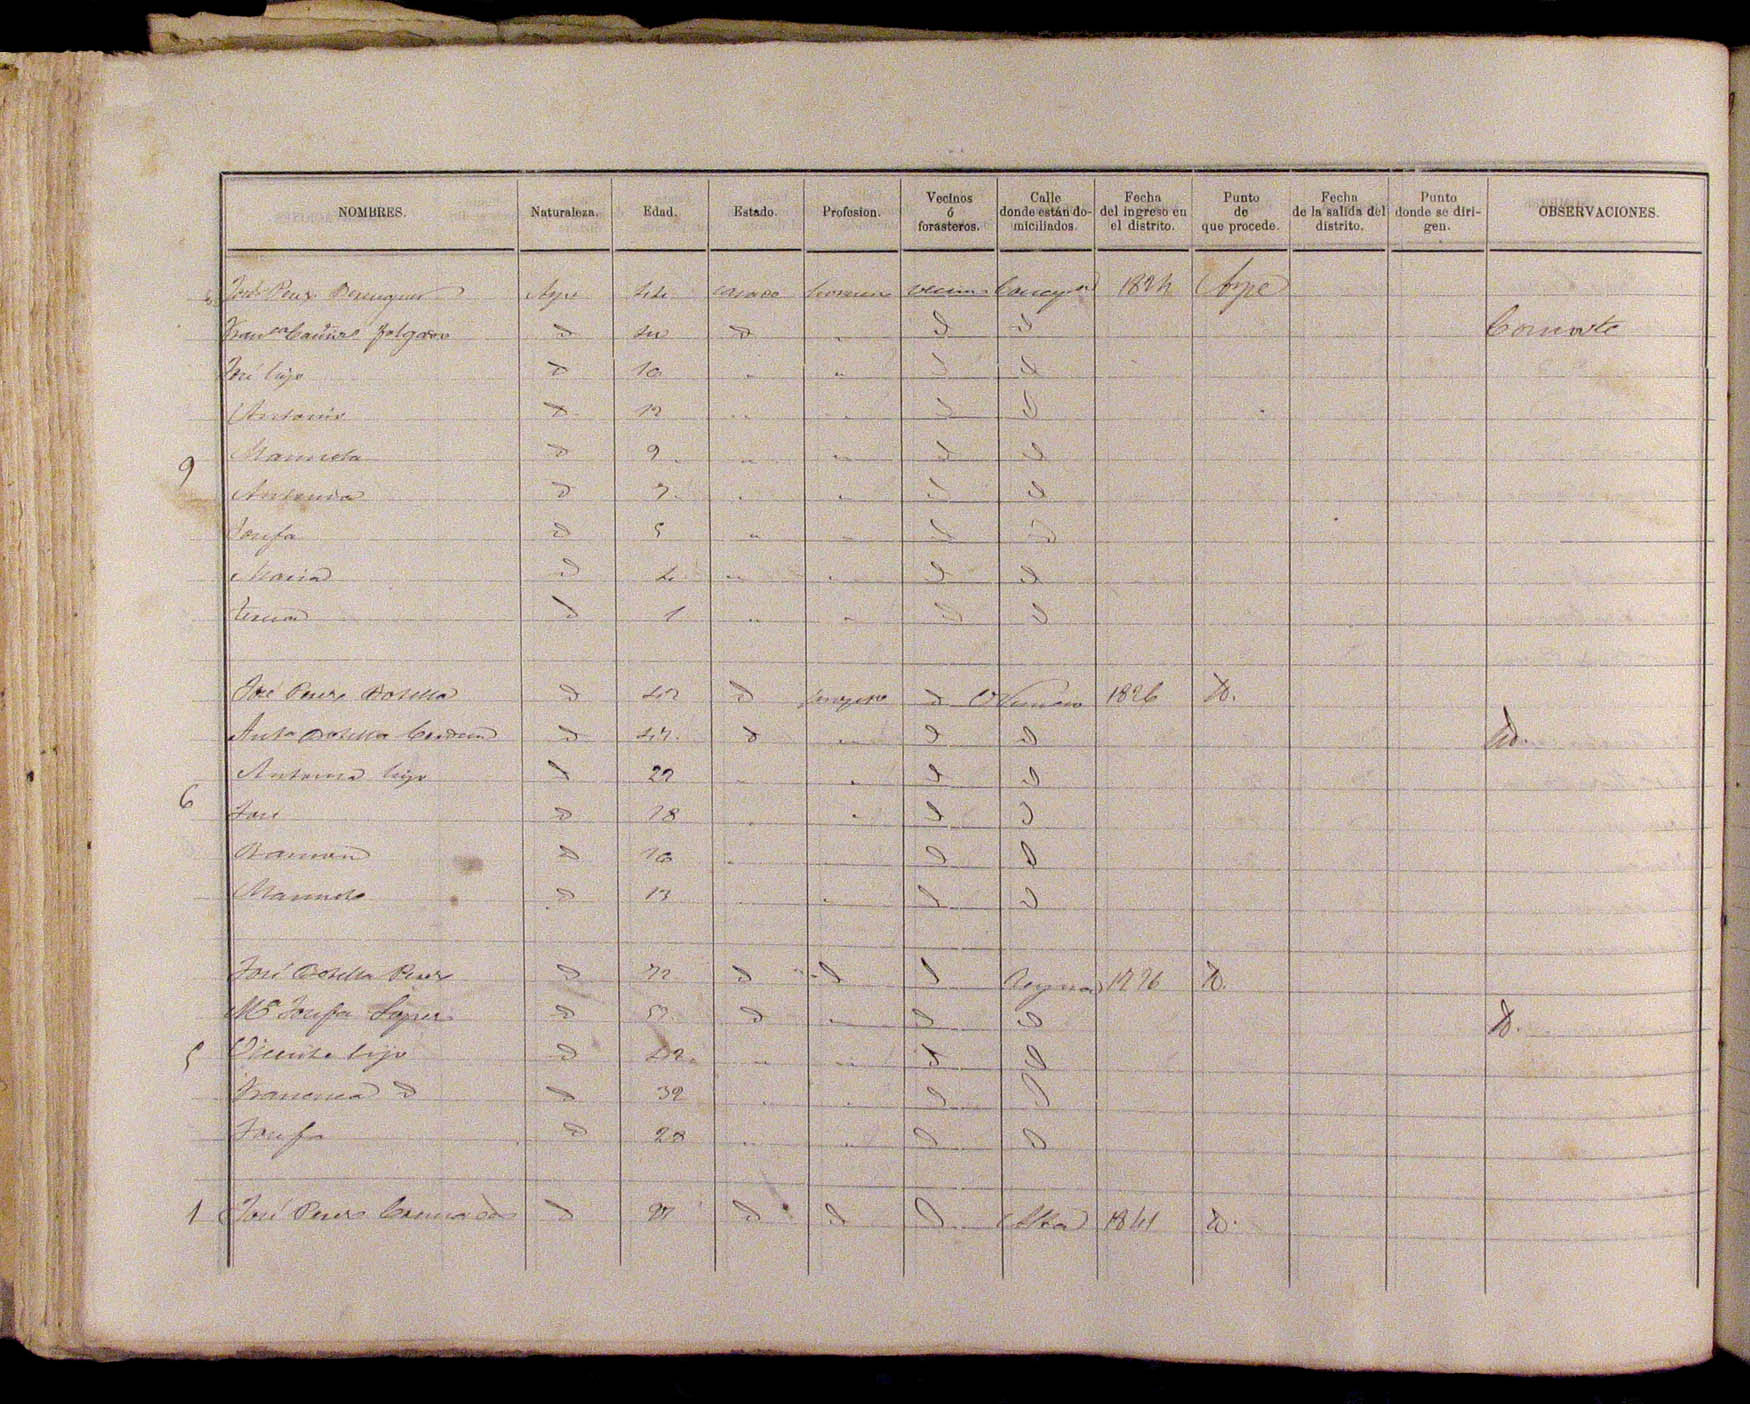 NOMBRES. Naturaleza. Edad. Estado. Profesion. Vecinos ó forasteros. Calle donde están domiciliados. Fecha del ingreso en el distrito. Punto de que procede. Fecha de la salida del distrito. Punto donde se dirigen. OBSERVACIONES.
José Perez Berenguer Aspe 44 casado vecino 1824 Aspe
Franca d d d d Consorte
José hijo d 16 " " d d
Antonio d 12 " " d d
9 Manuela d 9 " " d d
Antonia d 7 " " d d
Josefa d 5 " " d d
Maria d 4 " " d d
Teresa d 1 " " d d
José Perez Botella d 42 d d 1826 D.
Anta Botella d 47 d " d d D.
Antonia hijo d 22 " " d d
6 José d 18 " " d d
Ramon d 16 " d d
Manuel d 13 " d d
José Botella Perez d 72 d d d 1796 D.
Ma Josefa Lopez d d " d d D.
5 Vicente hijo d 42 " " d d
Francisca d d 32 " " d d
Josefa d 28 " " d d
1 José Perez d 27 d d d 1841 D.